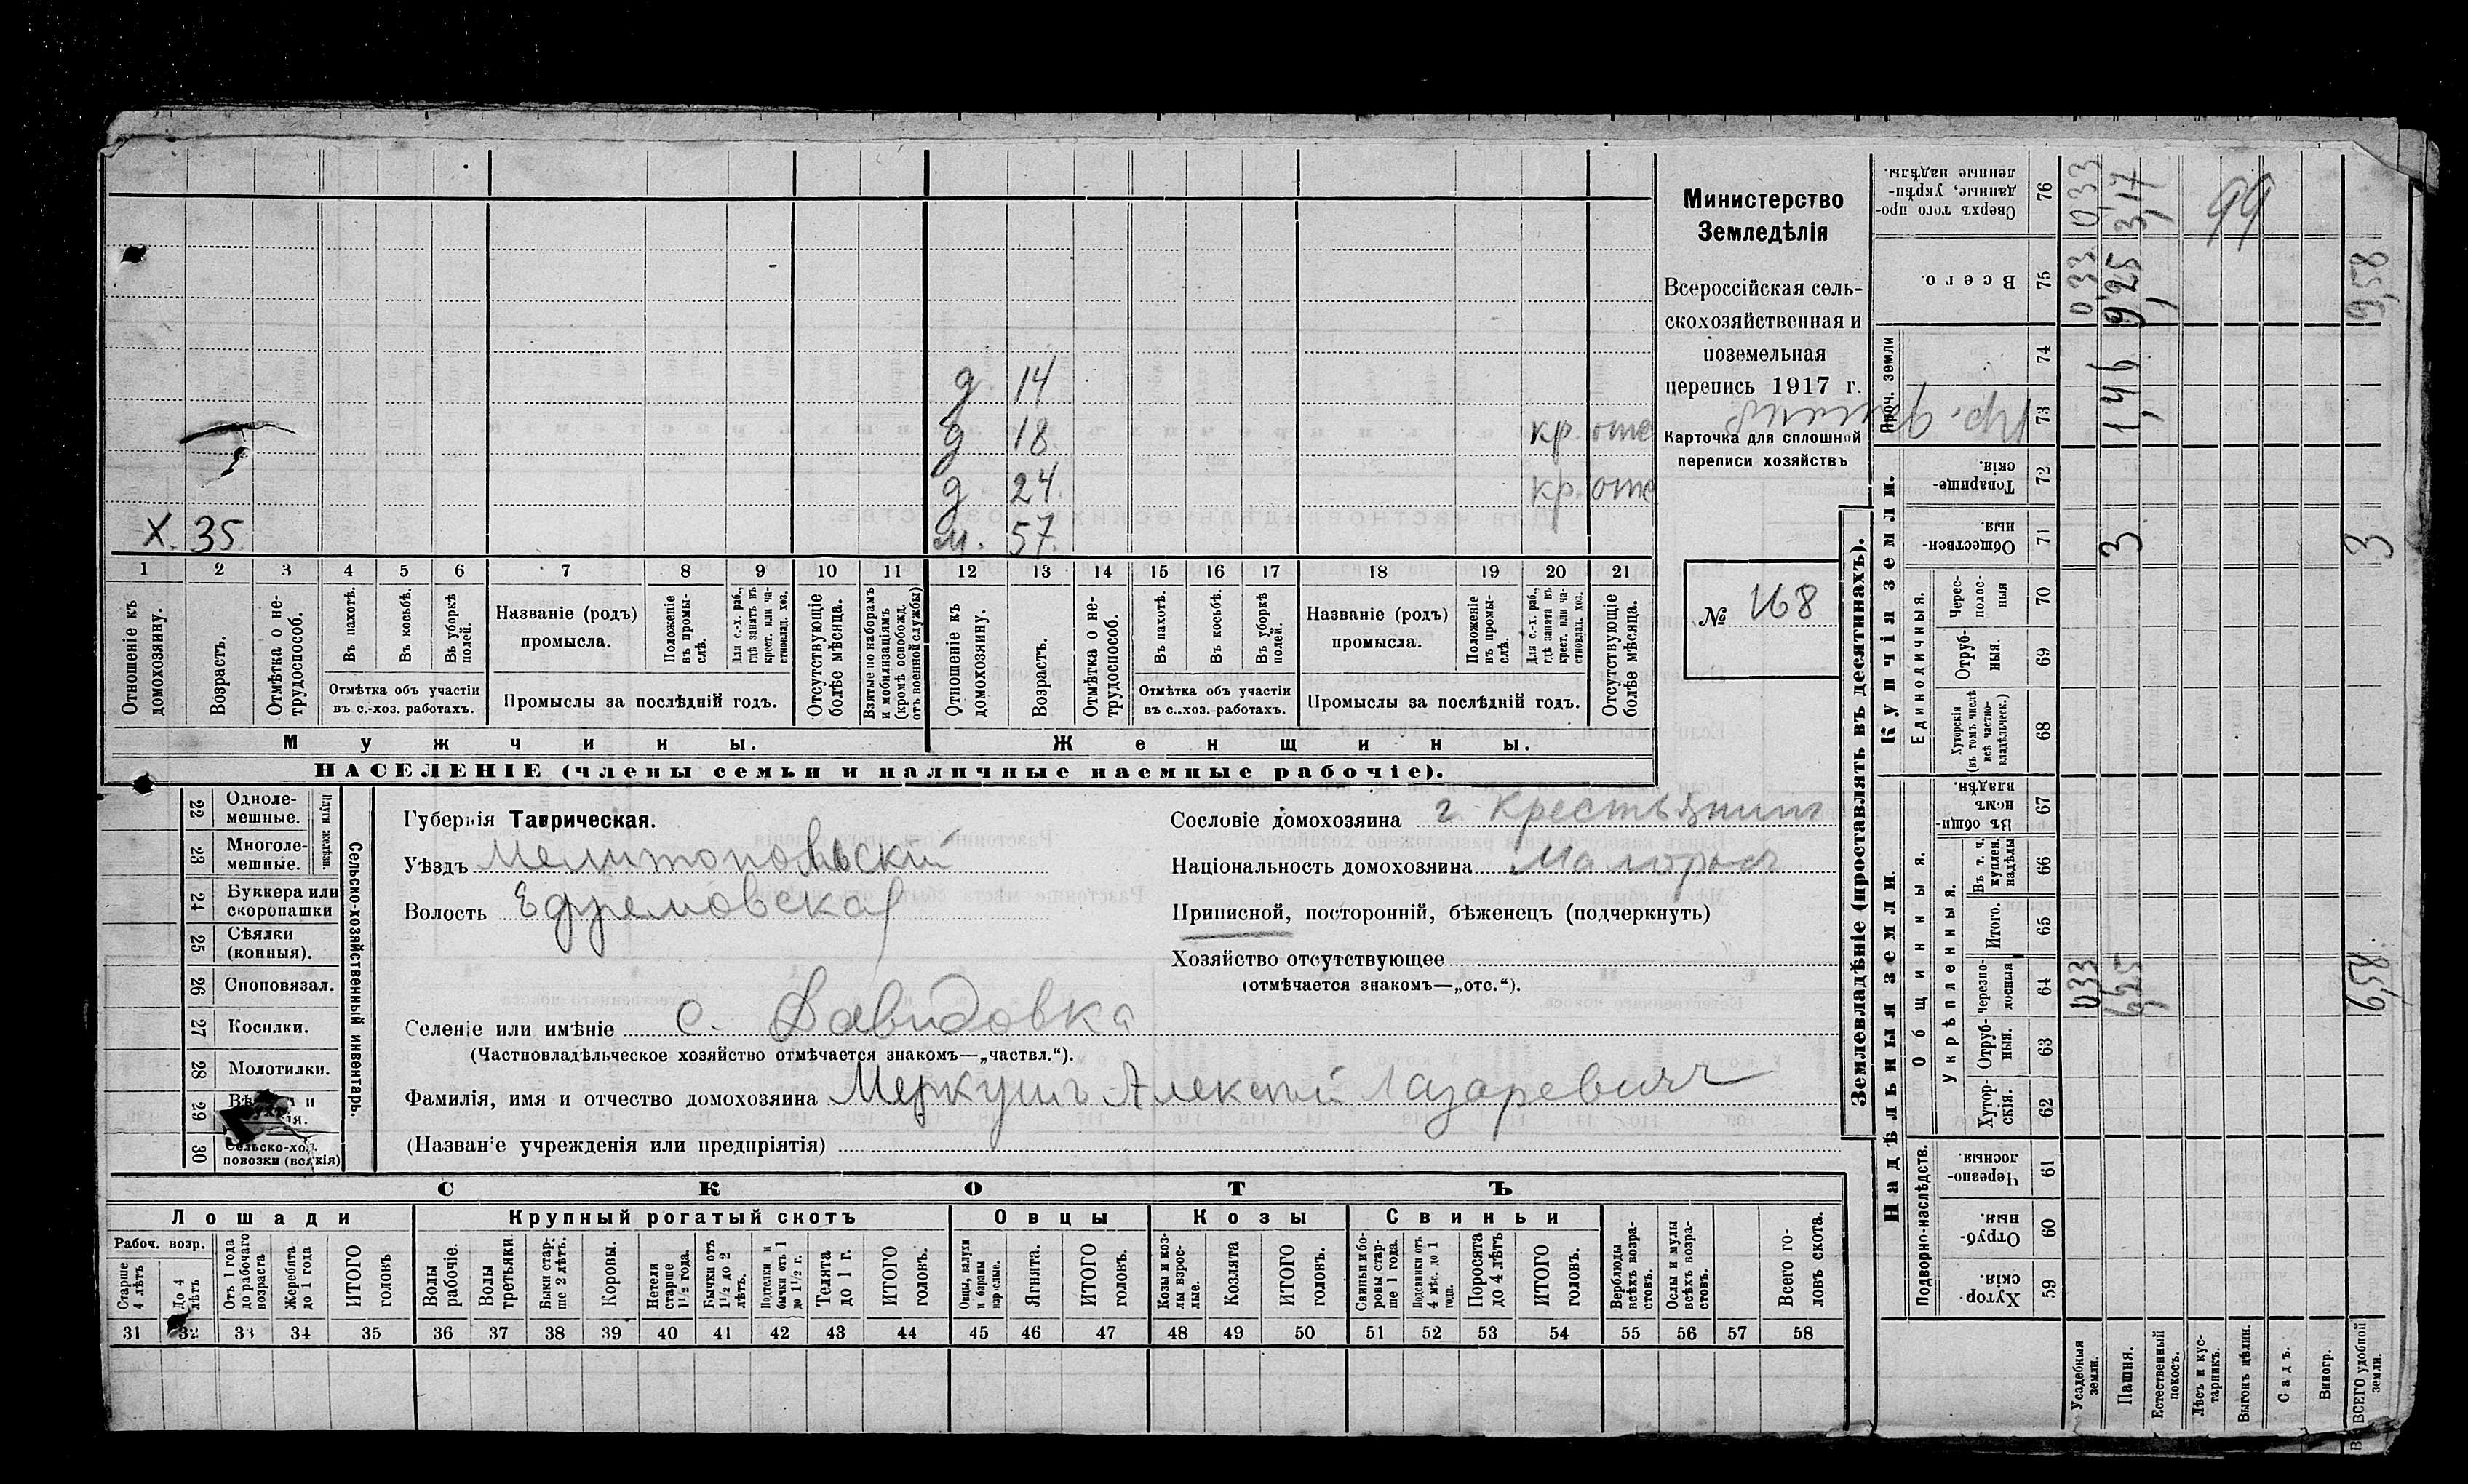 д 14
д 18. кр. отс
д 24. кр. отс
Х. 35. м. 57.
1 2 3 4 5 6 7 8 9 10 11 12 13 14 15 16 17 18 19 20 21
Отношеніе къ домохозяину.
Возрастъ.
Отмѣтка о не-трудоспособ.
Въ пахотѣ.
Въ косьбѣ.
Въ уборкѣ полей.
Отмѣтка объ участіи въ с.-хоз. работахъ.
Названіе (родъ) промысла.
Положеніе въ промы-слѣ.
Для с.-х. раб., гдѣ занятъ въ крест. или ча-стновлад. хоз.
Промыслы за послѣдній годъ.
Отсутствующіе болѣе мѣсяца.
Взятые по наборамъ и мобилизаціямъ (кромѣ освобожд. отъ военной службы)
Отношеніе къ домохозяину.
Возрастъ.
Отмѣтка о не-трудоспособ.
Въ пахотѣ.
Въ косьбѣ.
Въ уборкѣ полей.
Отмѣтка объ участіи въ с.-хоз. работахъ.
Названіе (родъ) промысла.
Положеніе въ промы-слѣ.
Для с.-х. раб., гдѣ занята въ крест. или ча-стновлад. хоз.
Промыслы за послѣдній годъ.
Отсутствующіе болѣе мѣсяца.
Мужчины. Женщины.
НАСЕЛЕНІЕ (члены семьи и наличные наемные рабочіе).
Министерство
Земледѣлія
Всероссійская сель-
скохозяйственная и
поземельная
перепись 1917 г.
Карточка для сплошной
переписи хозяйствъ
№ 168
22 Одноле-мешные.
23 Многоле-мешные.
Плуги желѣзн.
24 Буккера или скоропашки
25 Сѣялки (конныя).
26 Сноповязал.
27 Косилки.
28 Молотилки.
29
30 Сельско-хоз. повозки (всякія)
Сельско-хозяйственный инвентарь.
Губернія Таврическая.
Уѣздъ Мелитопольскій
Волость Ефремовская
Селеніе или имѣніе с. Давидовка
(Частновладѣльческое хозяйство отмѣчается знакомъ—„частвл.“).
Фамилія, имя и отчество домохозяина Меркушъ Алексѣй Лазаревичъ
(Назван'е учрежденія или предпріятія)
Сословіе домохозяина г. Крестьянинъ
Національность домохозяина Малоросъ
Приписной, посторонній, бѣженецъ (подчеркнуть)
Хозяйство отсутствующее
(отмѣчается знакомъ—„отс.“).
СКОТЪ
Лошади Крупный рогатый скотъ Овцы Козы Свиньи
Рабоч. возр.
Старше 4 лѣтъ
До 4 лѣтъ
Отъ 1 года до рабочаго возраста
Жеребята до 1 года
ИТОГО головъ
Волы рабочіе.
Волы третьяки
Быки стар-ше 2 лѣтъ.
Коровы.
Нетели старше 1½ года.
Бычки отъ 1½ до 2 лѣтъ.
Подтелки и бычки отъ 1 до 1½ г.
Телята до 1 г.
ИТОГО головъ.
Овцы, валухи и бараны взрослые.
Ягнята.
ИТОГО головъ.
Козы и коз-лы взрос-лые.
Козлята
ИТОГО головъ.
Свиньи и бо-ровы стар-ше 1 года.
Подсвинки отъ 4 мѣс. до 1 года.
Поросята до 4 лѣтъ
ИТОГО головъ.
Верблюды всѣхъ возра-стовъ.
Ослы и мулы всѣхъ возра-стовъ.
Всего го-ловъ скота.
31 32 33 34 35 36 37 38 39 40 41 42 43 44 45 46 47 48 49 50 51 52 53 54 55 56 57 58
Землевладѣніе (проставлять въ десятинахъ).
Сверхъ того про-данные, укрѣп-ленные надѣлы. 76 0,33 3,17 99
Всего. 75 0 33 9,25 9,58
Проч. земли
74
73 1,46
Купчія земли.
Товарище-скія. 72
Обществен-ныя. 71 3 3
Единоличныя.
Черес-полос-ныя 70
Отруб-ныя. 69
Хуторскія (въ томъ числѣ всѣ частно-владѣльческ.) 68
Надѣльныя земли.
Общинныя.
Въ общи-номъ владѣн. 67
Укрѣпленныя.
Въ т. ч. куплен. надѣлы 66
Итого. 65
Черезпо-лосныя 64 0 33 6,25 6,58.
Отруб-ныя. 63
Хутор-скія. 62
Подворно-наслѣдств.
Черезпо-лосныя. 61
Отруб-ныя. 60
Хутор-скія. 59
Усадебныя земли.
Пашня.
Естественный покосъ.
Лѣсъ и кус-тарникъ.
Выгонъ цѣлин.
Садъ.
Виногр.
ВСЕГО удобной земли.